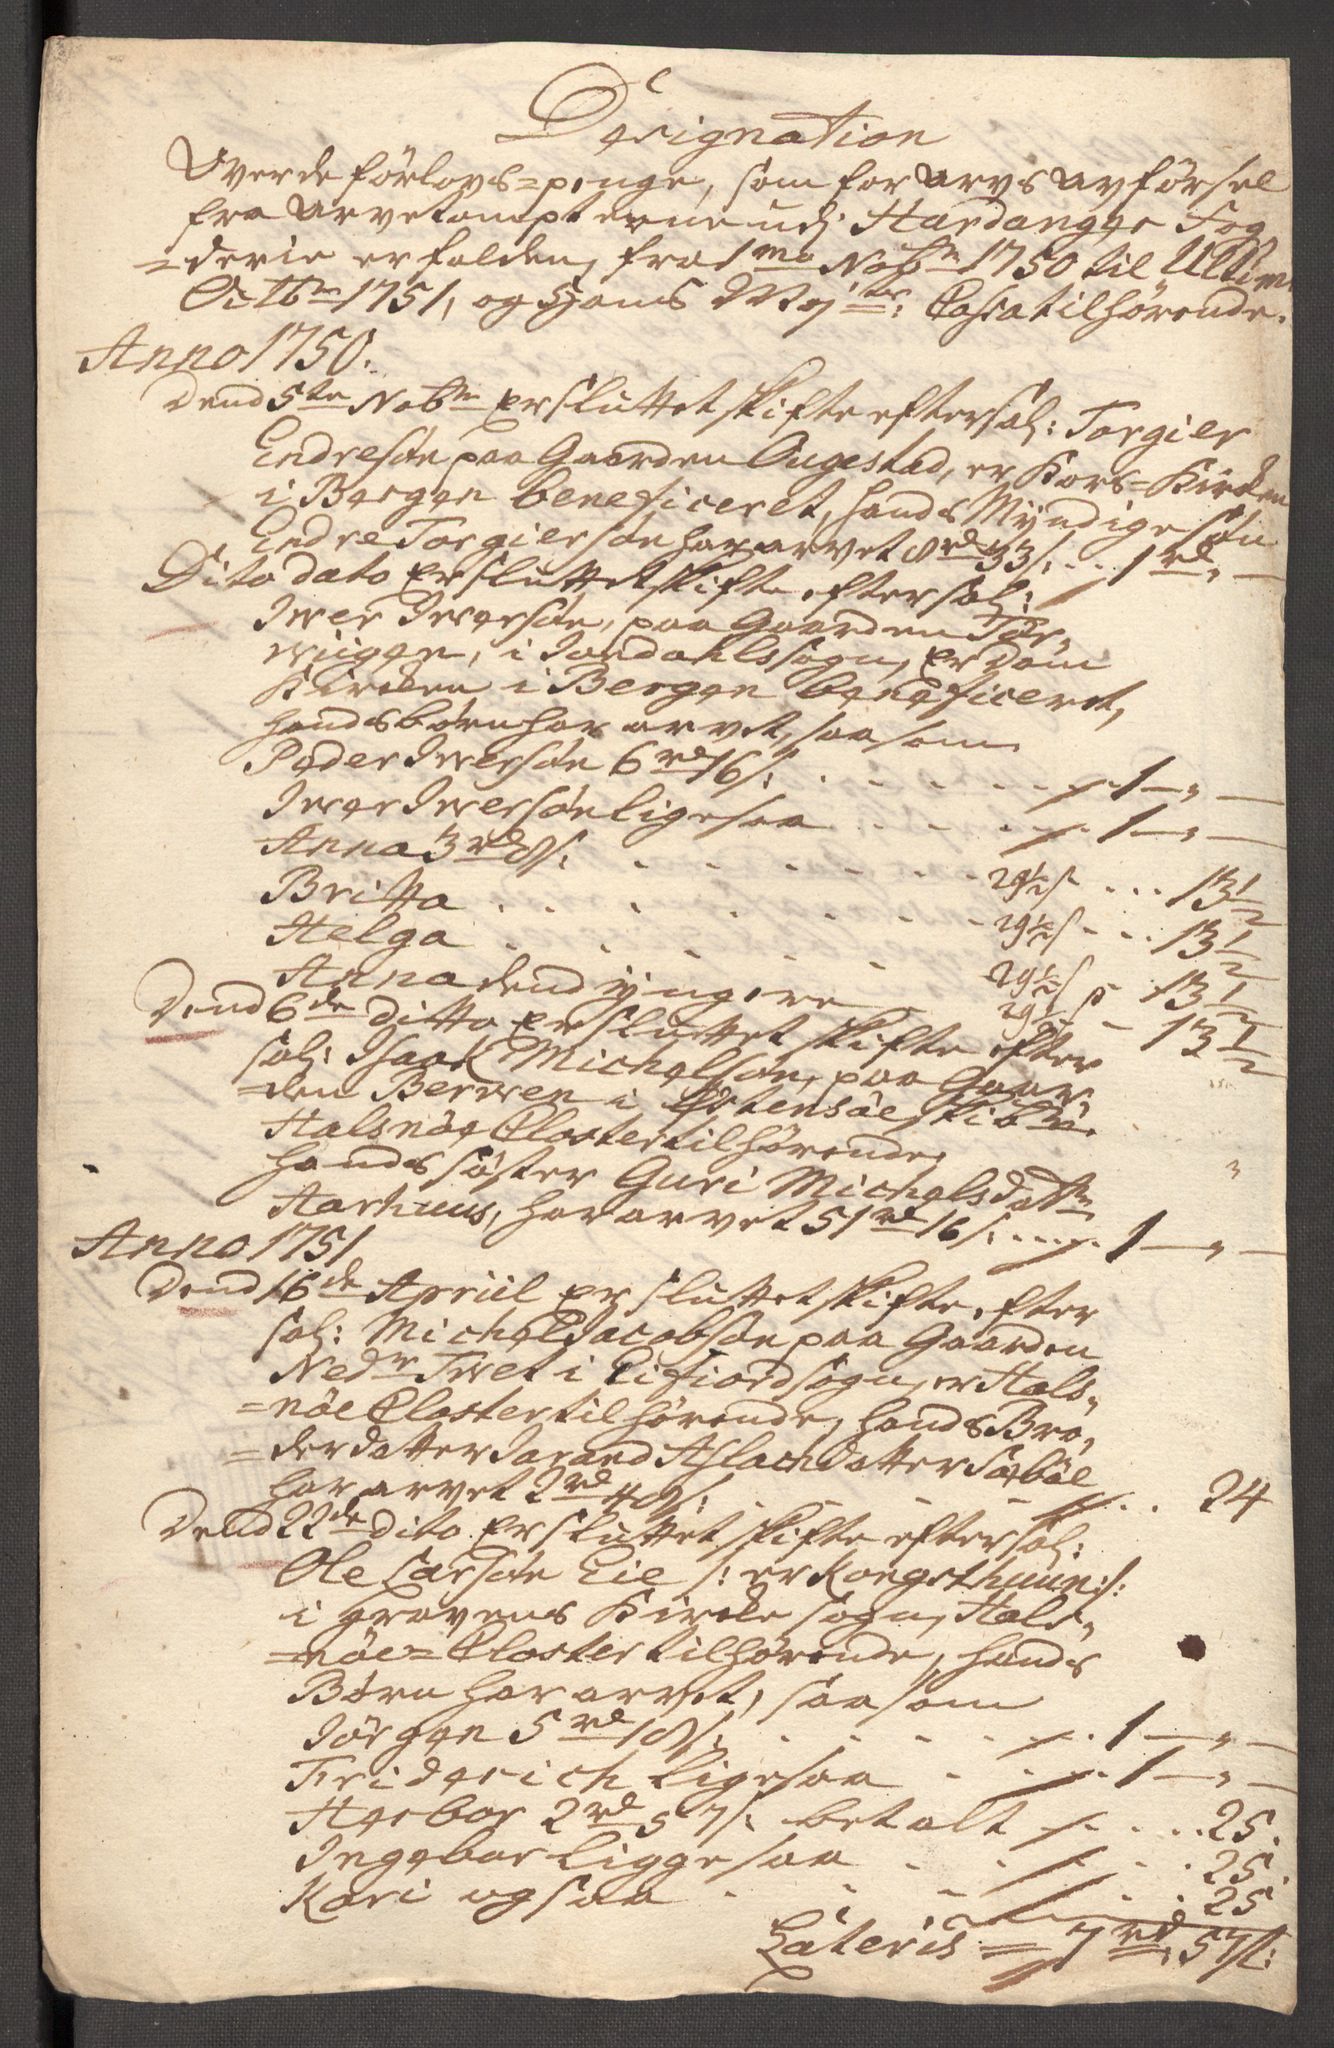 Designation
Over de förlovs=penge, som for Arvs Avförsel
fra Arvetompterne udj Hardanger Fog
=derie er falden, fra 1mo Nobr 1750 til Ultim
Octbr 1751, og Hans May:ts Cassa tilhörende.
Anno 1750.
Dend 5te Nobr er sluttet skifte efter sal: Torgier
Endresön paa Gaarden Augestad, er Kors=Kirken
i Bergen beneficeret, hands Myndige sön
Endre Torgiersön har arvet 8 rd 33 s: . . . 1 rd " —
Dito dato er sluttet skifte efter sal:
Iwer Iwersön, paa Gaarden Tör,
wiigen, i Jondahls sogn, er Dom
Kirken i Bergen beneficeret,
hands börn har arvet, saasom
Peder Iwersön 6 rd 16 s: . . . . . . 1 — " —
Iwer Iwersön ligesaa . . . . . 1 — " —
Anna 3 rd 8 s: . . . . . . . 29½ s . . . 13½
Britta . . . . . . . . 29½ s . . . 13½
Helga . . . . . 29½ s . 13½
Anna dend yngere 29½ s — 13½
Dend 6de ditto er sluttet skifte efter
sal: Isaak Michelsön, paa Gaar
=den Berven i Östensöe Skibr:
Halsnöe Closter tilhörende,
hands söster Guri Michelsdatter
Aarhuus, har arvet 51 rd 16 s: . . . . 1 — " —
Anno 1751
Dend 16de Apriil er sluttet skifte efter
sal: Michel Jacobsön paa Gaarden
Nedr Twet i Eifiord sogn, er Hals,
=nöe Closter tilhörende, hands Bro,
=derdatter Jorand Aslachdatter Sæböe
har arvet 2 rd 48 s: . . . . . 24
Dend 22de dito er sluttet skifte efter sal:
Ole Larsön Eie /: er Kongsthuun :/
i Gravens Kirke sogn, Hals,
=nöe=Closter tilhörende, hands
Börn har arvet, saasom
Jörgen 5 rd 18 s: . . . . . . 1 — " —
Friderich ligesaa . . . . 1 — " —
Herbor 2 rd 57 s: betalt . . . . 25.
Ingebor liggesaa . . . . . 25.
Kari ogsaa . . . . . 25
Lateris = 7 rd 57 s: